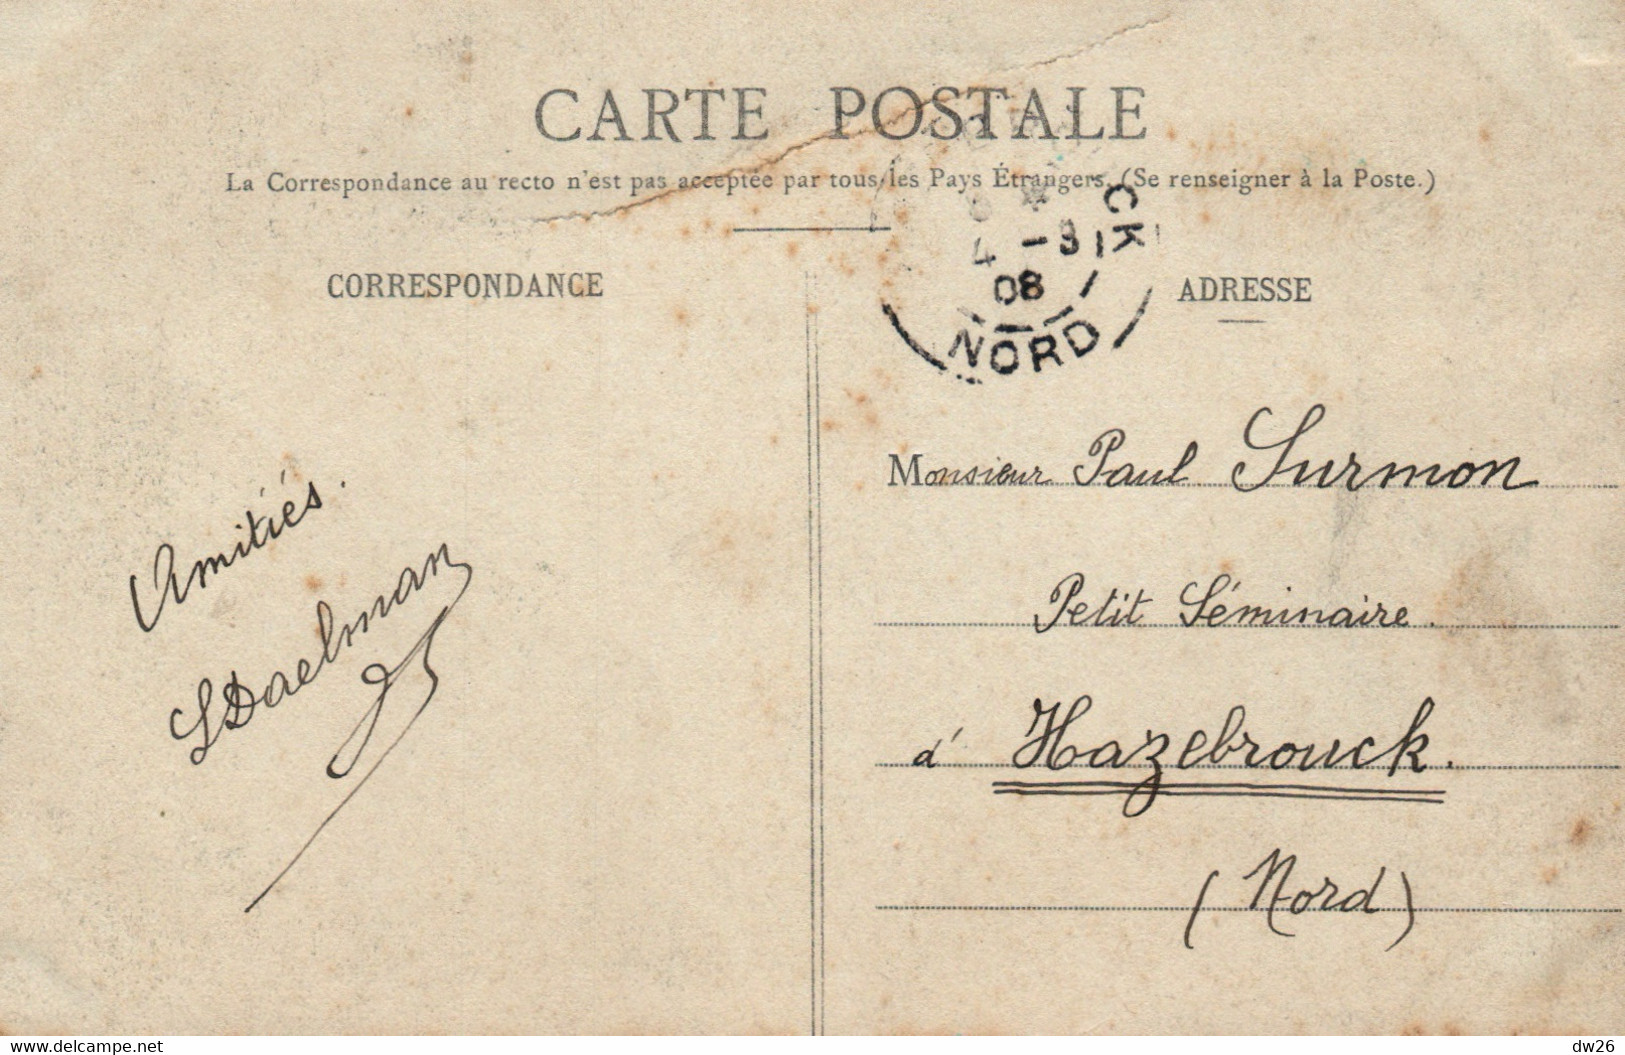 CARTE POSTALE
La Correspondance au recto n'est pas acceptée par tous les Pays Étrangers. (Se renseigner à la Poste.)
CK
4 -3
08
NORD
CORRESPONDANCE
ADRESSE
Amitiés.
Daelman
Monsieur Paul Surmon
Petit Séminaire.
d' Hazebrouck.
(Nord)
delcampe.net
dw26